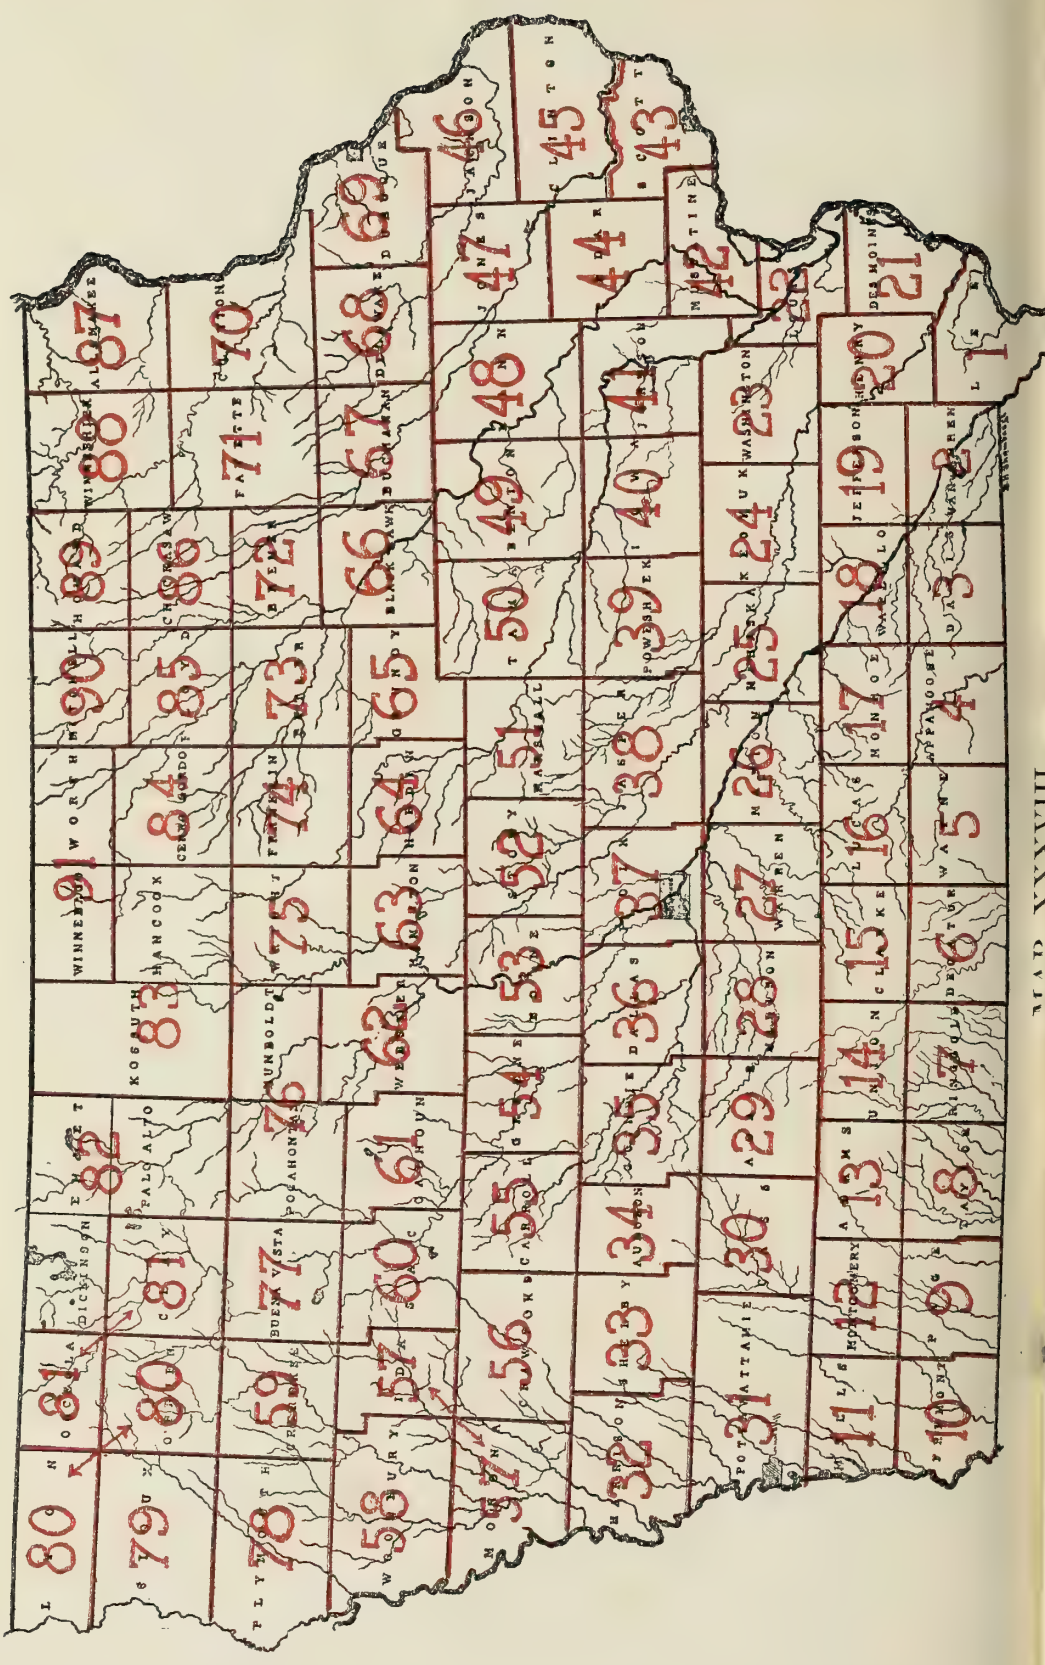 LYON 80
OSCEOLA 81
DICKINSON
EMMET 82
KOSSUTH 83
WINNEBAGO 91
WORTH
MITCHELL 90
HOWARD 89
WINNESHIEK 88
ALLAMAKEE 87
SIOUX 79
O'BRIEN 80
CLAY 81
PALO ALTO
HANCOCK
CERRO GORDO 84
FLOYD 85
CHICKASAW 86
FAYETTE 71
CLAYTON 70
PLYMOUTH 78
CHEROKEE 59
BUENA VISTA 77
POCAHONTAS 76
HUMBOLDT
WRIGHT 75
FRANKLIN 74
BUTLER 73
BREMER 72
WOODBURY 58
IDA 57
SAC 60
CALHOUN 61
WEBSTER 62
HAMILTON 63
HARDIN 64
GRUNDY 65
BLACK HAWK 66
BUCHANAN 67
DELAWARE 68
DUBUQUE 69
MONONA 57
CRAWFORD 56
CARROLL 55
GREENE 54
BOONE 53
STORY 52
MARSHALL 51
TAMA 50
BENTON 49
LINN 48
JONES 47
JACKSON 46
HARRISON 32
SHELBY 33
AUDUBON 34
GUTHRIE 35
DALLAS 36
POLK 37
JASPER 38
POWESHIEK 39
IOWA 40
JOHNSON 41
CEDAR 44
CLINTON 45
SCOTT 43
POTTAWATTAMIE 31
CASS 30
ADAIR 29
MADISON 28
WARREN 27
MARION 26
MAHASKA 25
KEOKUK 24
WASHINGTON 23
MUSCATINE 42
LOUISA 22
MILLS 11
MONTGOMERY 12
ADAMS 13
UNION 14
CLARKE 15
LUCAS 16
MONROE 17
WAPELLO 18
JEFFERSON 19
HENRY 20
DES MOINES 21
FREMONT 10
PAGE 9
TAYLOR 8
RINGGOLD 7
DECATUR 6
WAYNE 5
APPANOOSE 4
DAVIS 3
VAN BUREN 2
LEE 1